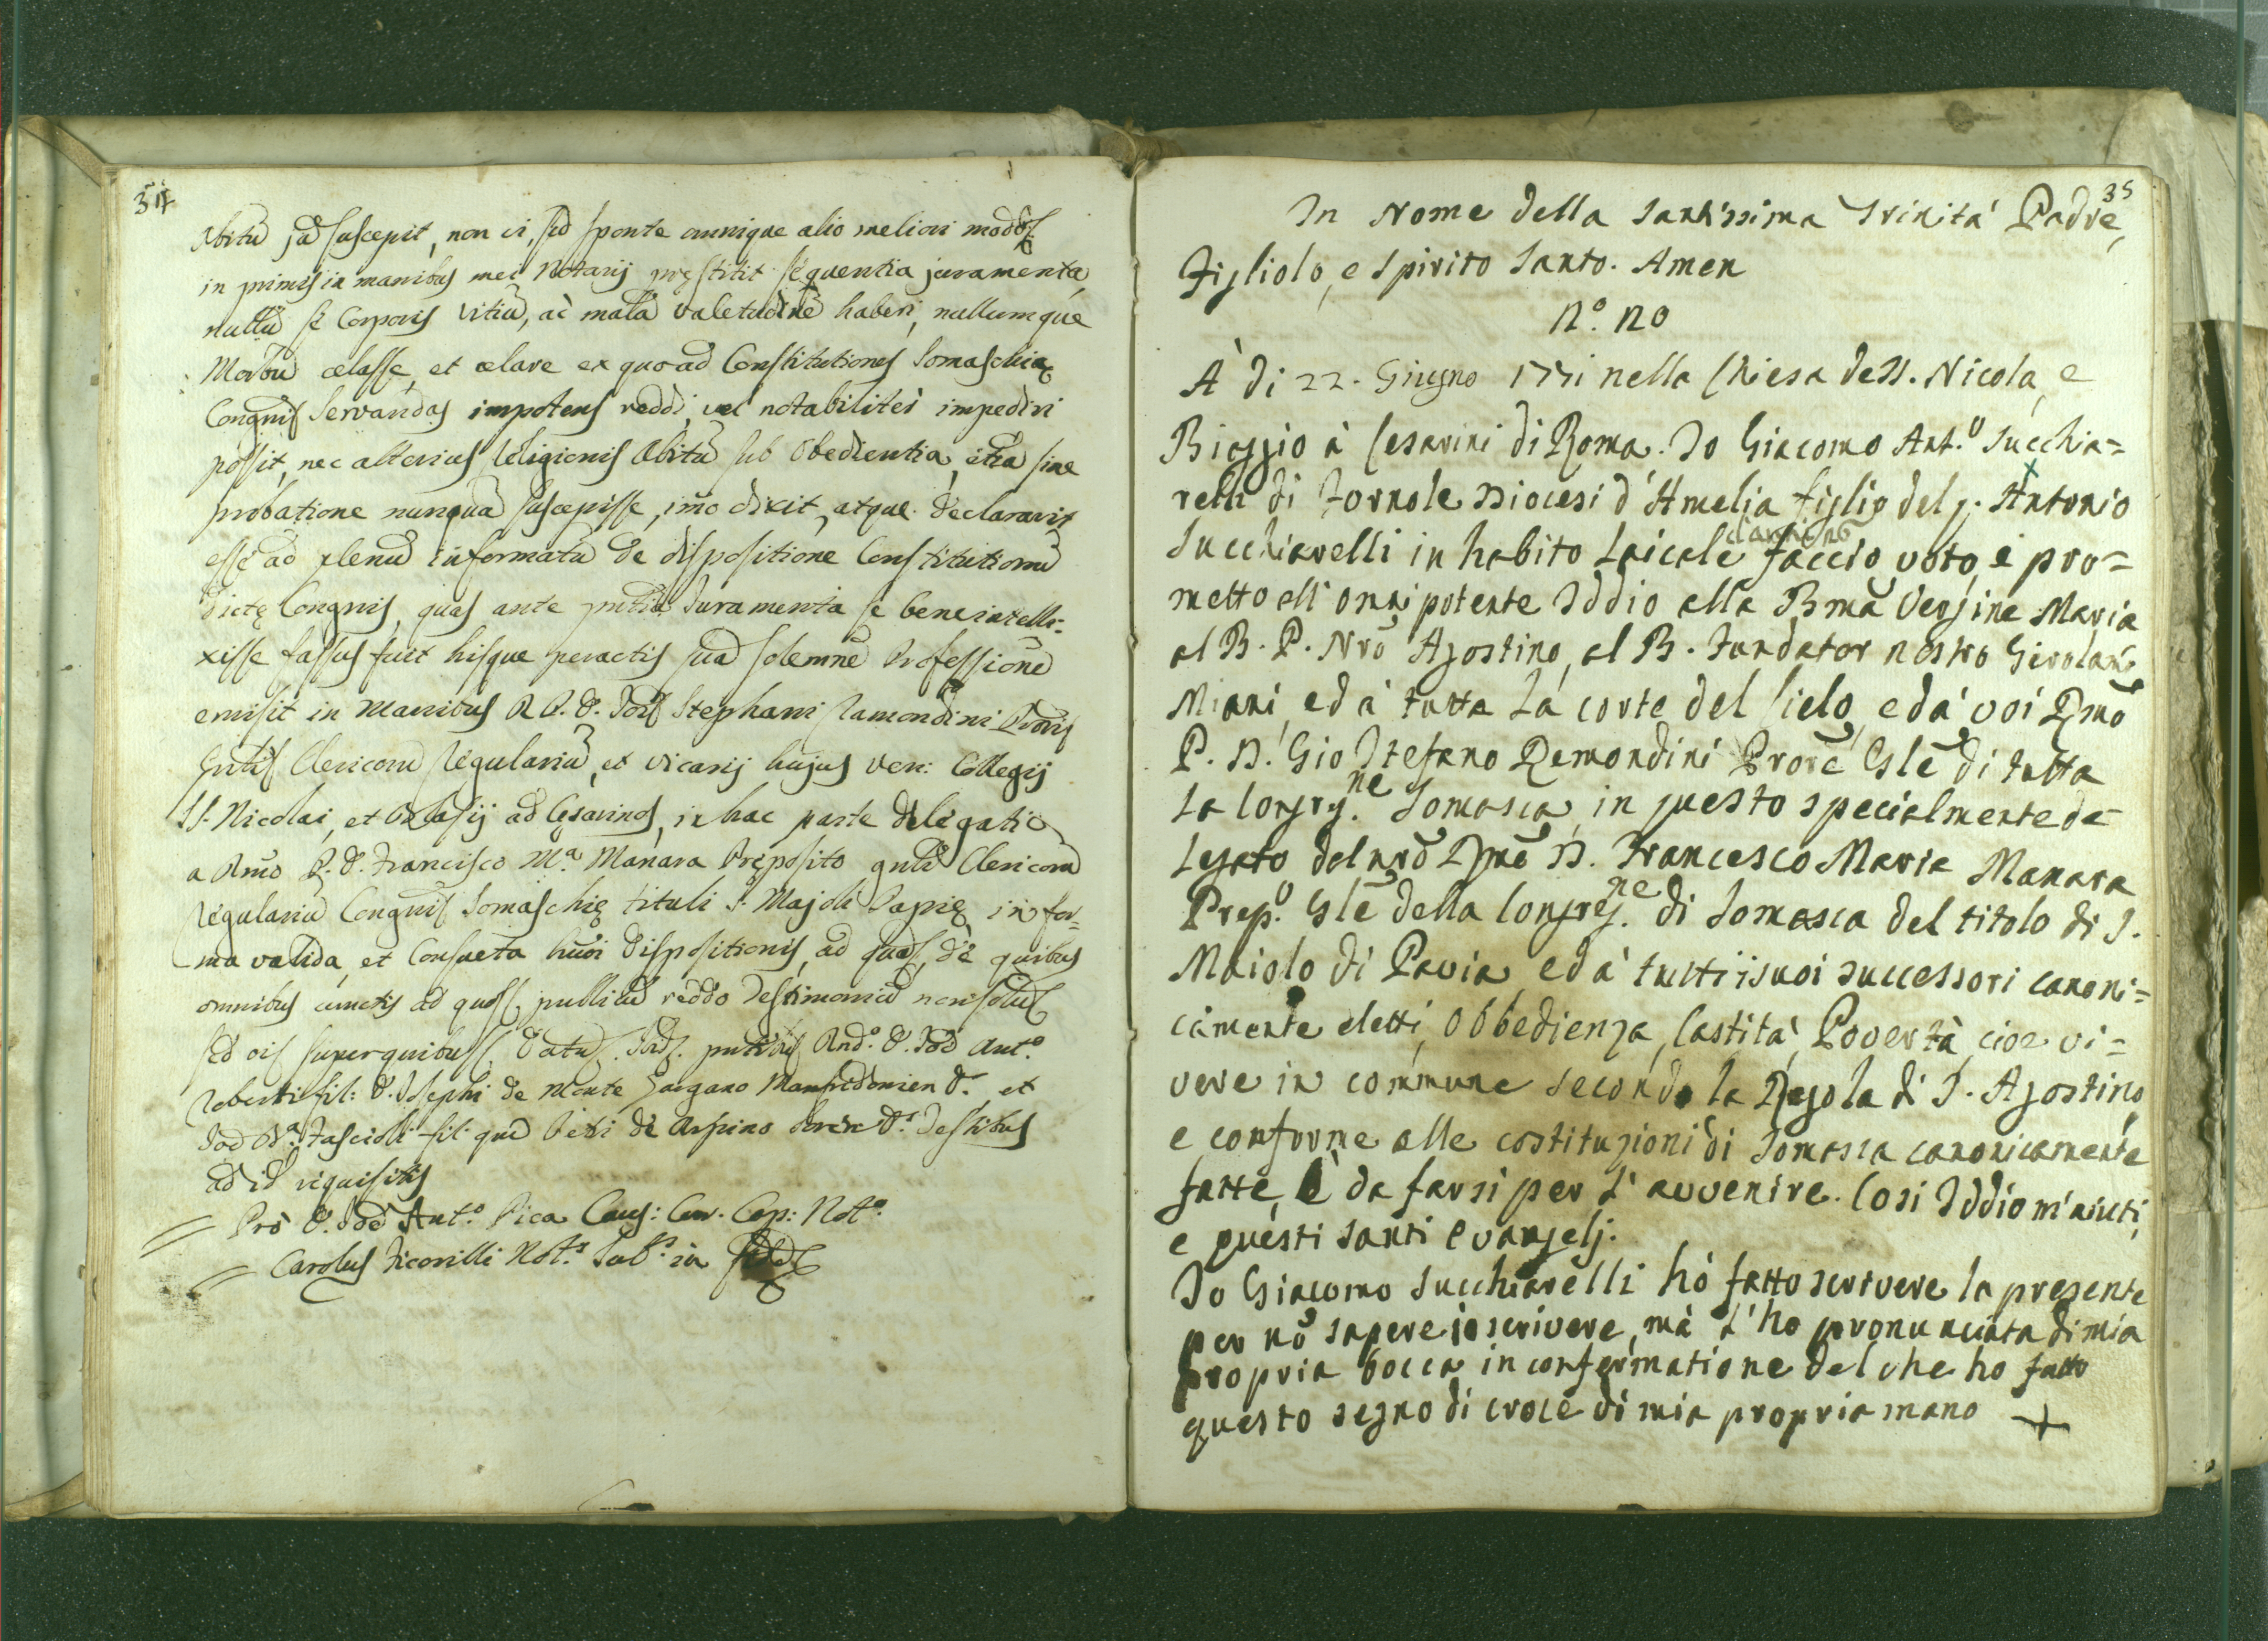 34
Abitũ jad suscepit, non vi, sed sponte omnique alio meliori modo
in primis in manibus mei Notarij pręstitit sequentia juramenta,
nullũ se Corporis vitiũ, ac malã valetudinẽ haberi, nullumque
Morbũ celasse, et celare ex quo ad Constitutiones Somaschiæ
Congñis servandas impotens reddi, vel notabiliter impediri
possit, nec alterius Religionis Abitũ sub obedientia, etiã sine
probatione nunquã suscepisse, imò dixit, atque declaravit
esse ad plenũ informatũ de dispositione Constitutionũ
dictę Congñis, quas ante pñtia Juramenta se bene intelle-
xisse fassus fuit hisque peractis suã solemnẽ Professionẽ
emisit in manibus R P. D. Jois Stephani Ramondini Proris
Gñlis Clericorũ Regulariũ, et vicarij hujus Ven: Collegij
SS. Nicolai, et Blasij ad Cęsarinos, in hac parte delegati
a Rmõ P. D. Francisco M.ª Manara Pręposito gnli Clericorũ
Regulariũ Congnis Somaschię tituli S. Majoli Papię in for-
ma valida, et Consueta huõi dispositionis, ad quas, de quibus
omnibus cunctis ad quos publicũ reddo testimoniũ non solũ
sed ois super quibus datũ pntibus Rnd.º D. Joẽ Ant.º
Roberti fil: D. Josephi de Monte Gargano Manfredonien D. et
Joẽ Fascioli fil: qũo Petri de Arpino Testibus
ad id requisitis
Pro D. Joẽ Ant.º Pica Caus: Cur. Cap: Not.º
Carolus Ficorilli Not.s Sub.s in fidẽ
35
In Nome della santissima Trinità Padre,
Figliolo, e Spirito Santo. Amen
N.º no
À di 22. Giugno 1731 nella Chiesa deSS. Nicola, e
Biaggio à Cesarini di Roma. Io Giacomo Ant.º Succhia=
relli di Fornole Diocesi d'Amelia figlio del q. Antonio
Succhiarelli in habito Laicale faccio voto, e pro=
metto all'onnipotente Iddio alla Bmã Vergine Maria
al B. P. Nrõ Agostino, al B. Fundator nostro Girolam̃
Miani, ed à tutta la corte del Cielo, ed à voi Rmõ
P. D. Gio Stefano Remondini Prorẽ Glẽ di tutta
la Congrg.ne Somasca, in questo specialmente de-
legato dal nrõ Rmõ D. Francesco Maria Manara
Prep.º Glẽ della Congreg.ne di Somasca del titolo di S.
Maiolo di Pavia, ed à tutti i suoi successori canoni=
camente eletti, Obbedienza, Castità, Povertà, cioe vi=
vere in commune secondo la Regola di S. Agostino
e conforme alle costituzioni di Somasca canonicamente
fatte, è da farsi per l'avvenire. Cosi Iddio m'aiuti,
e questi santi evangelj.
Io Giacomo Succhiarelli hò fatto scrivere la presente
per nõ sapere io scrivere, mà l'ho pronunciata di mia
propria bocca in confermatione del che ho fatto
questo segno di croce di mia propria mano +